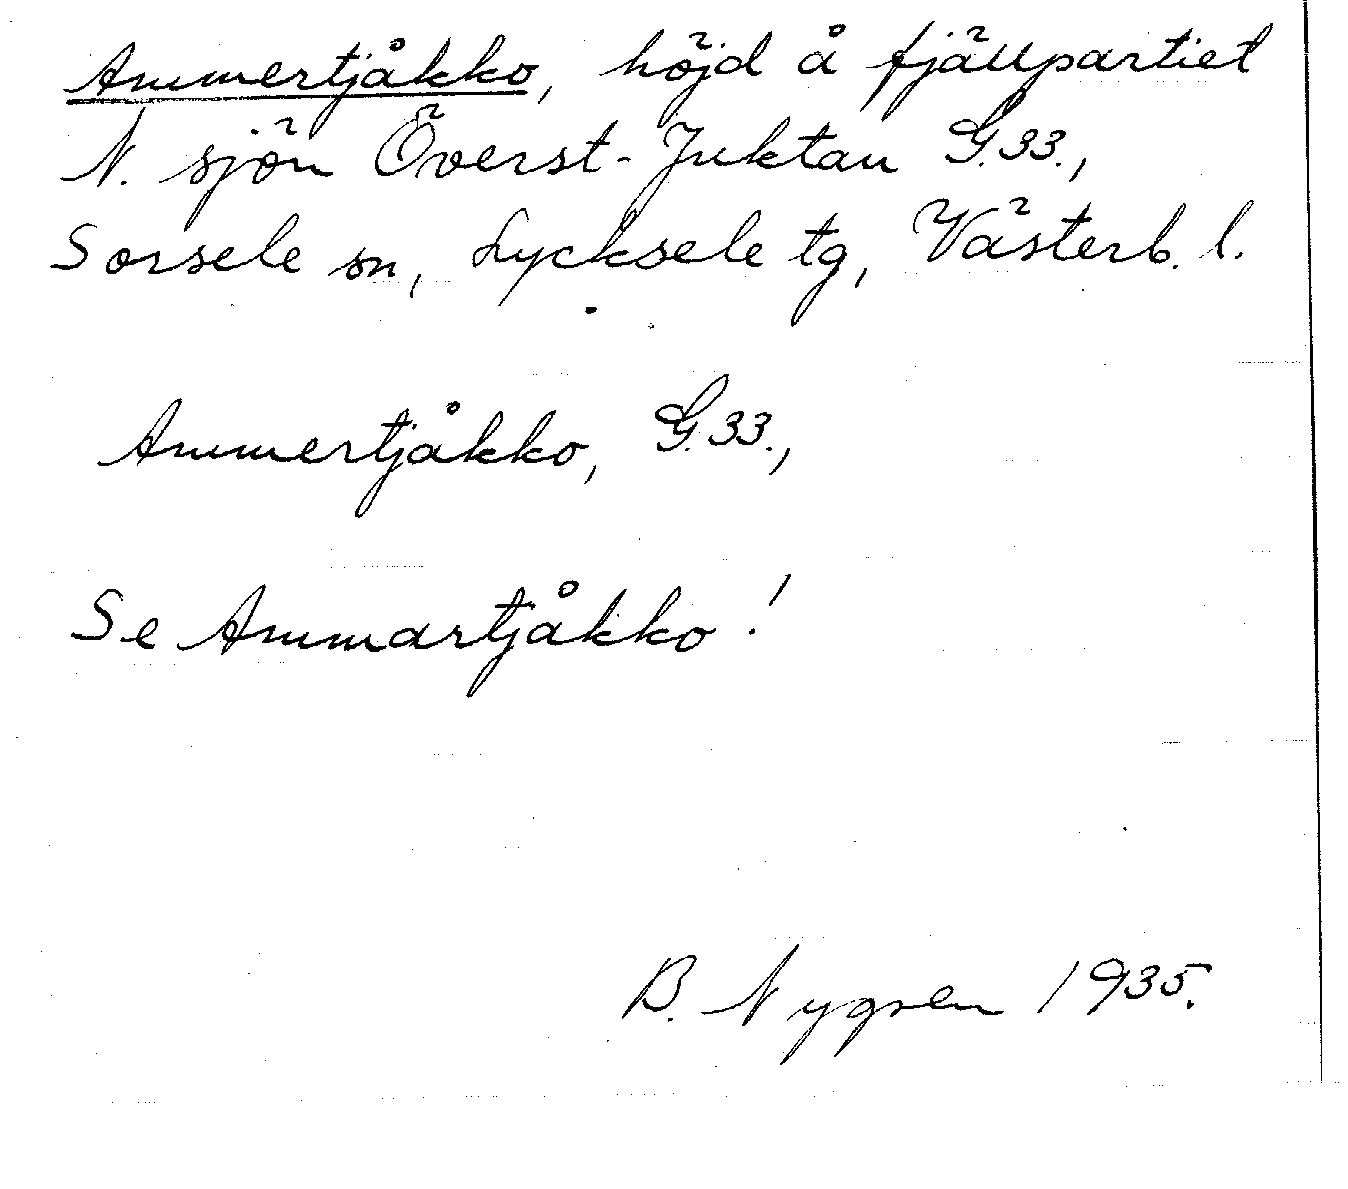 Ammertjåkko, höjd å fjällpartiet
N. sjön Överst-Juktan G.33.,
Sorsele sn, Lycksele tg, Västerb. l.
Ammertjåkko, G.33.,
Se Ammartjåkko!
B. Nygren 1935.